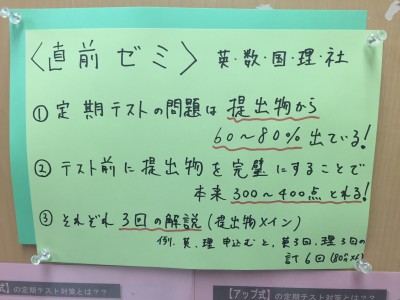 〈直前ゼミ〉 英・数・国・理・社
① 定期テストの問題は提出物から
60〜80%出ている!
② テスト前に提出物を完璧にすることで
本来300〜400点とれる!
③ それぞれ3回の解説(提出物メイン)
例、英、理 申込むと、英3回、理3回の
計6回(80分×6)
の定期テスト対策とは??
【アップ式】の定期テスト対策とは??